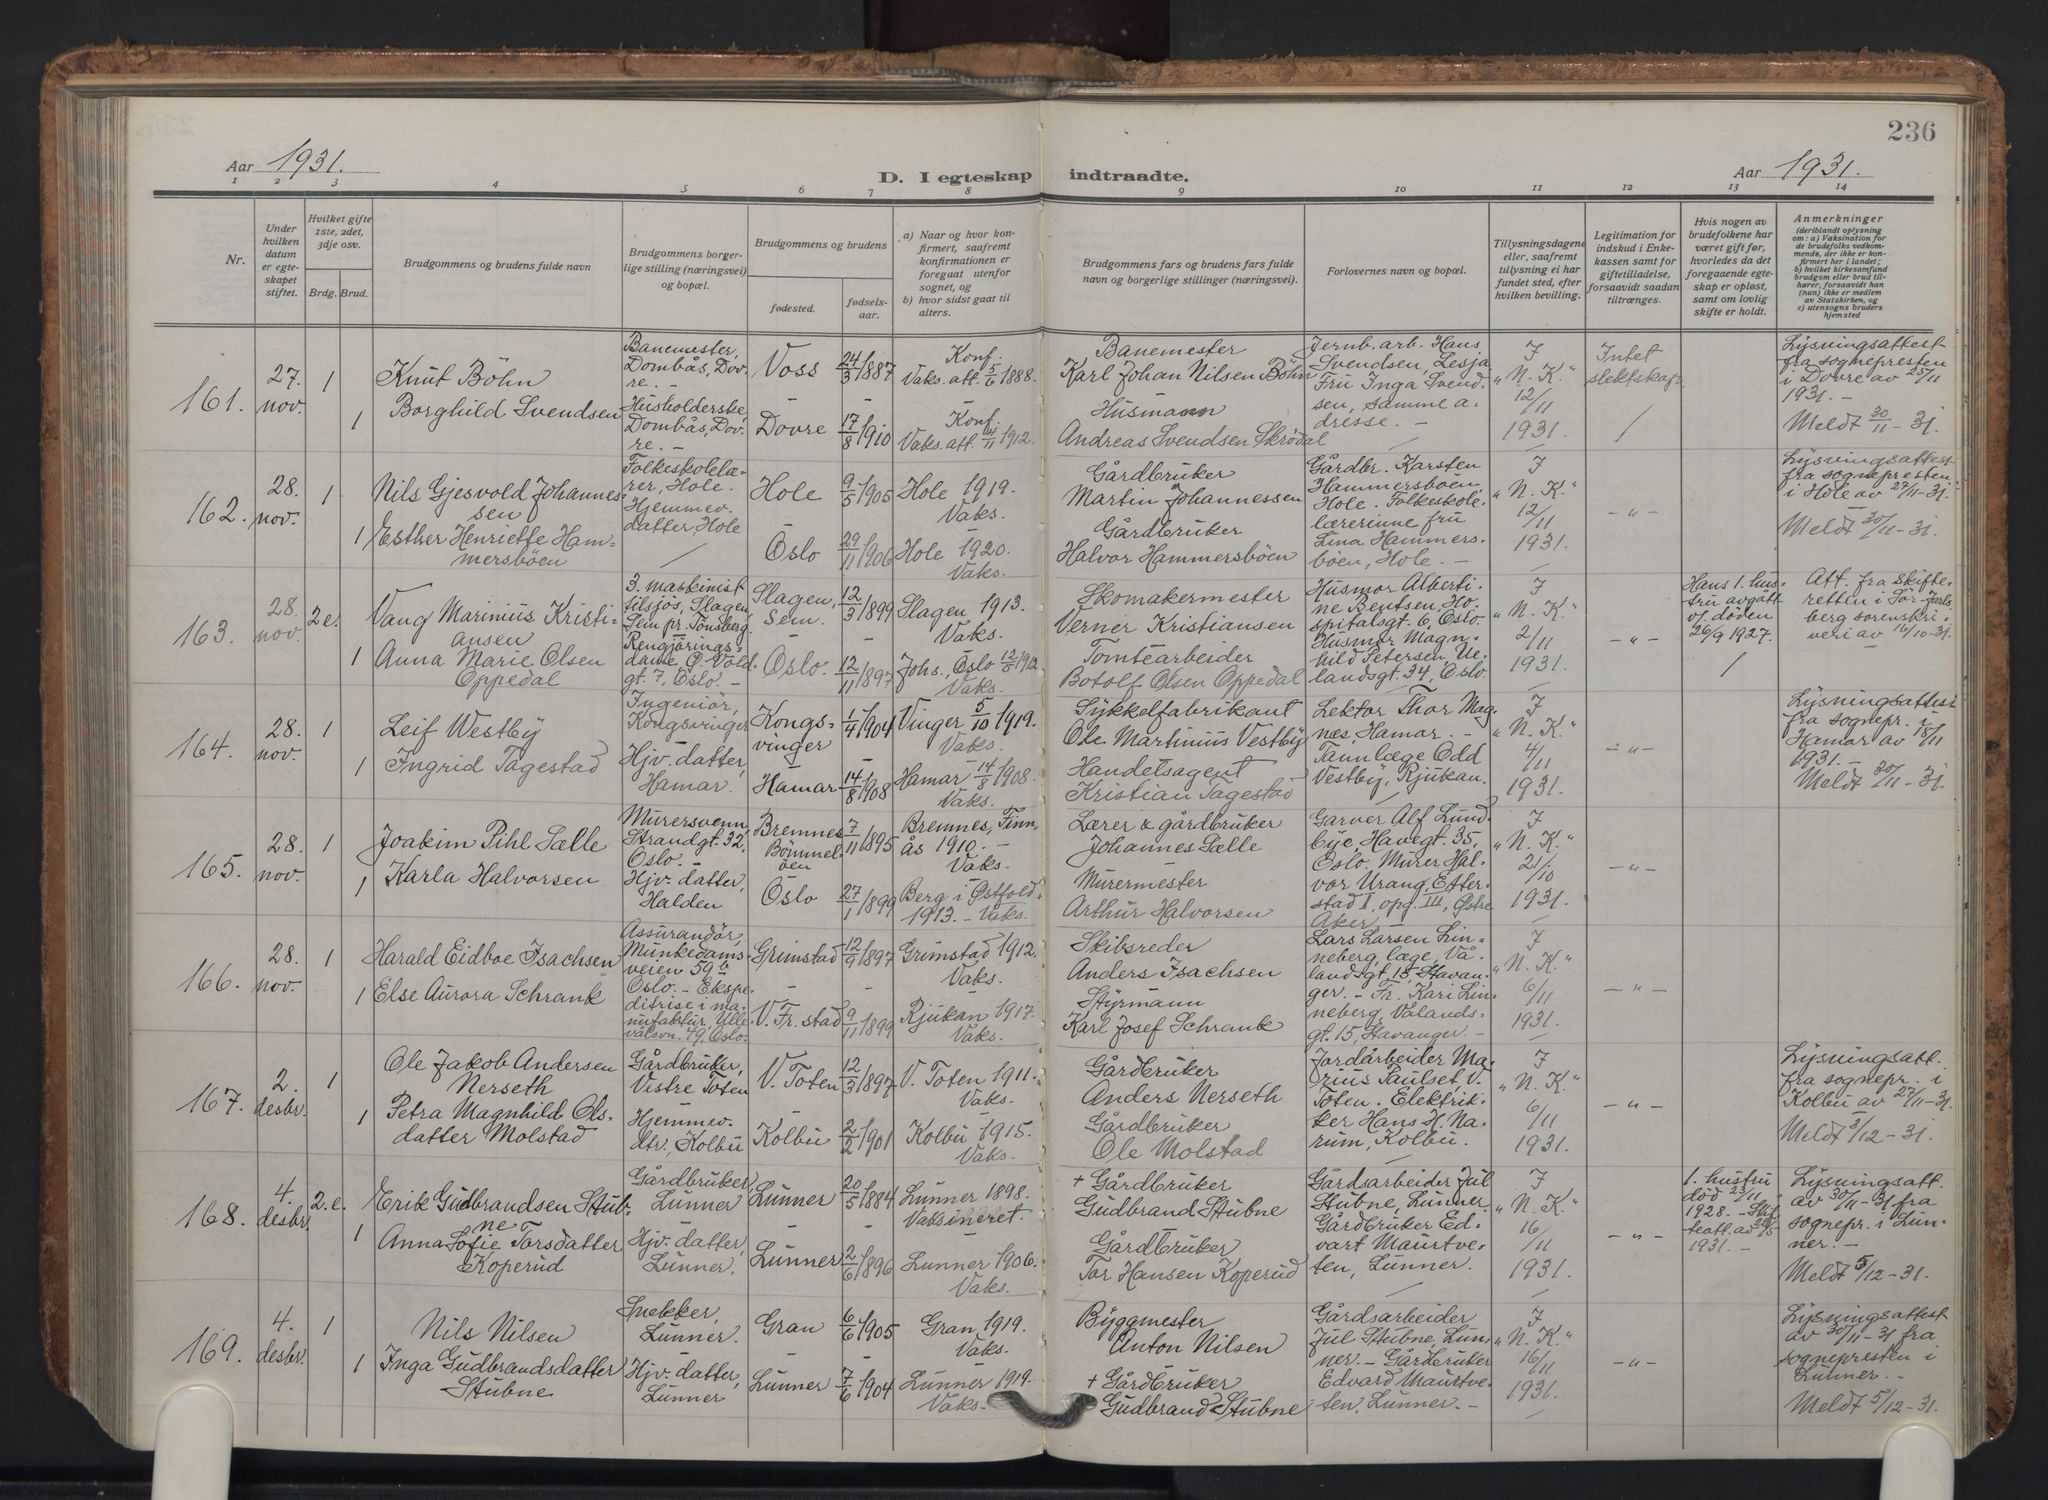 236
Aar 1931.
D. I egteskap indtraadte.
Aar 1931.
1 2 3 4 5 6 7 8 9 10 11 12 13 14
Nr.
Under hvilken datum er egteskapet stiftet.
Hvilket gifte 1ste, 2det, 3dje osv.
Brdg. Brud.
Brudgommens og brudens fulde navn
Brudgommens borgerlige stilling (næringsvei) og bopæl.
Brudgommens og brudens
fødested.
fødselsaar.
a) Naar og hvor konfirmert, saafremt konfirmationen er foregaat utenfor sognet, og
b) hvor sidst gaat til alters.
Brudgommens fars og brudens fars fulde navn og borgerlige stillinger (næringsvei).
Forlovernes navn og bopæl.
Tillysningsdagene eller, saafremt tillysning ei har fundet sted, efter hvilken bevilling.
Legitimation for indskud i Enkekassen samt for giftetilladelse, forsaavidt saadan tiltrænges.
Hvis nogen av brudefolkene har været gift før, hvorledes da det foregaaende egteskap er opløst, samt om lovlig skifte er holdt.
Anmerkninger
(deriblandt oplysning om: a) Vaksination for de brudefolks vedkommende, der ikke er konfirmert her i landet; b) hvilket kirkesamfund brudgom eller brud tilhører, forsaavidt han (hun) ikke er medlem av Statskirken, og c) utensogns bruders hjemsted
161. 27. nov. 1
Knut Böhn
Banemester, Dombås, Dovre. -
Voss 24/3 1887
Konf. Vaks. att. 5/6 1888.
Banemester
Karl Johan Nilsen Böhn
Jernb. arb. Hans Svendsen, Lesja
Fru Inga Svendsen, samme adresse. -
I "N. K." 12/11 1931.
Intet slektskap
Lysningsattest fra sognepresten i Dovre av 25/11 1931. -
Meldt 30/11-31.
1 Borghild Svendsen
Husholderske, Dombås, Dovre. -
Dovre 17/8 1910
Konf. Vaks. att. 1912.
Husmann
Andreas Svendsen Skrödal
162. 28. nov. 1
Nils Gjesvold Johannessen
Folkeskolelærer, Hole.
Hole 9/5 1905
Hole 1919. Vaks.
Gårdbruker
Martin Johannessen
Gårdbr. Karsten Hammersböen, Hole. Folkeskolelærerinne fru Lina Hammersböen, Hole. -
I "N. K." 12/11 1931.
-"-
Lysningsattest fra sognepresten i Hole av 27/11-31.
Meldt 30/11-31.
1 Esther Henriette Hammersböen
Hjemmev. datter, Hole
Oslo 29/11 1906
Hole 1920. Vaks.
Gårdbruker
Halvor Hammersböen
163. 28. nov. 2e.
Vang Marinius Kristiansen
3. maskinist tilsjös, Slagen, Sem pr. Tönsberg.
Slagen, Sem. 12/3 1899
Slagen 1913. Vaks.
Skomakermester
Verner Kristiansen
Husmor Albertine Bentsen, Hospitalsgt. 6, Oslo.
Husmor Magnhild Petersen, Uelandsgt. 34, Oslo.
I "N. K." 2/11 1931.
-"-
Hans 1. hustru avgått v/ döden 26/9 1927.
Att. fra skifteretten i Sör-Jarlsberg sorenskriveri av 16/10-31.
1 Anna Marie Olsen Oppedal
Rengjöringsdame, Ö. Voldgt. 7, Oslo. -
Oslo. 12/11 1897
Johs., Oslo 12/5 1912 Vaks.
Tomtearbeider
Botolf Olsen Oppedal
164. 28. nov. 1
Leif Westby
Ingeniör, Kongsvinger
Kongsvinger 1/4 1904
Vinger 5/10 1919. Vaks.
Sykkelfabrikant
Ole Martinius Vestby
Lektor Thor Magnæs, Hamar. -
Tannlæge Odd Vestby, Rjukan.
I "N. K." 4/11 1931.
-"-
Lysningsattest fra sognepr. i Hamar av 18/11 1931. -
Meldt 30/11-31.
1 Ingrid Tagestad
Hjv. datter, Hamar.
Hamar 14/8 1908
Hamar 14/8 1908. Vaks.
Handelsagent
Kristian Tagestad
165. 28. nov. 1
Joakim Pihl Sælle
Murersvenn, Strandgt. 32, Oslo. -
Bremnes Bömmelöen 7/11 1895
Bremnes, Finnås 1910. - Vaks.
Lærer & gårdbruker
Johannes Sælle
Garver Alf Lundbye, Havegt. 35, Oslo. Murer Halvor Urang, Etterstad II, opg. III, Östre Aker.
I "N. K." 21/10 1931.
-"-
1 Karla Halvorsen
Hjv. datter, Halden
Oslo 27/1 1899
Berg i Østfold 1913. - Vaks.
Murermester
Arthur Halvorsen
166. 28. nov. 1
Harald Eidboe Isachsen
Assurandör, Munkedamsveien 59b Oslo. -
Grimstad 12/9 1897
Grimstad 1912. Vaks.
Skibsreder
Anders Isachsen
Lars Larsen Linneberg, læge, Vålandsgt. 15, Stavanger. - Fr. Kari Linneberg, Vålandsgt. 15, Stavanger -
I "N. K." 6/11 1931.
-"-
1 Else Aurora Schrank
Ekspeditrise i manufaktur, Ullevålsvn. 49, Oslo.
V. Fr. stad 9/11 1899
Rjukan 1917. Vaks.
Styrmann
Karl Josef Schrank
167. 2. desbr. 1
Ole Jakob Andersen Nerseth
Gårdbruker, Vestre Toten
V. Toten 12/3 1897
V. Toten 1911. Vaks.
Gårdbruker
Anders Nerseth
Jordarbeider Marius Paulset V. Toten. Elektriker Hans H. Narum, Kolbu.
I "N. K." 6/11 1931.
-"-
Lysningsatt. fra sognepr. i Kolbu av 27/11-31.
Meldt 3/12-31.
1 Petra Magnhild Olsdatter Molstad
Hjemmev. dtr., Kolbu
Kolbu 2/2 1901
Kolbu 1915. Vaks.
Gårdbruker
Ole Molstad
168. 4. desbr. 2.e.
Erik Gudbrandsen Stubne
Gårdbruker, Lunner
Lunner 20/5 1884
Lunner 1898. Vaksineret.
+ Gårdbruker
Gudbrand Stubne
Gårdsarbeider Jul Stubne, Lunner.
Gårdbruker Edvart Maurtveten, Lunner.
I "N. K." 16/11 1931.
-"-
1. hustru död 23/11 1928. - Skifteatt. av 1931. -
Lysningsatt. av 30/11-31 fra sognepr. i Lunner. -
Meldt 5/12-31.
1 Anna Sofie Torsdatter Koperud
Hjv. datter, Lunner.
Lunner 2/6 1896
Lunner 1906. Vaks.
Gårdbruker
Tor Hansen Koperud
169. 4. desbr. 1
Nils Nilsen
Snekker, Lunner.
Gran 6/6 1905
Gran 1919. Vaks.
Byggmester
Anton Nilsen
Gårdsarbeider Jul Stubne, Lunner. - Gårdbruker Edvard Maurtveten, Lunner. -
I "N. K." 16/11 1931.
-"-
Lysningsattest av 30/11-31 fra sognepresten i Lunner. -
Meldt 5/12-31.
1 Inga Gudbrandsdatter Stubne
Hjv. datter, Lunner
Lunner 7/6 1904
Lunner 1919. Vaks.
+ Gårdbruker
Gudbrand Stubne